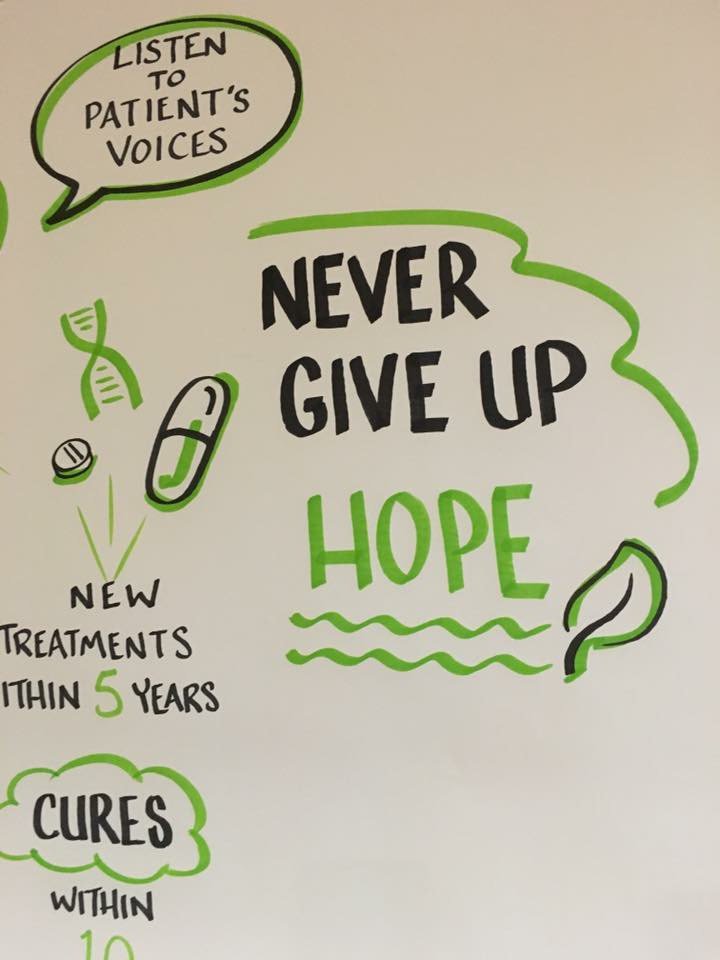 LISTEN
TO
PATIENT'S
VOICES
NEVER
GIVE UP
HOPE
NEW
TREATMENTS
ITHIN 5 YEARS
CURES
WITHIN
10